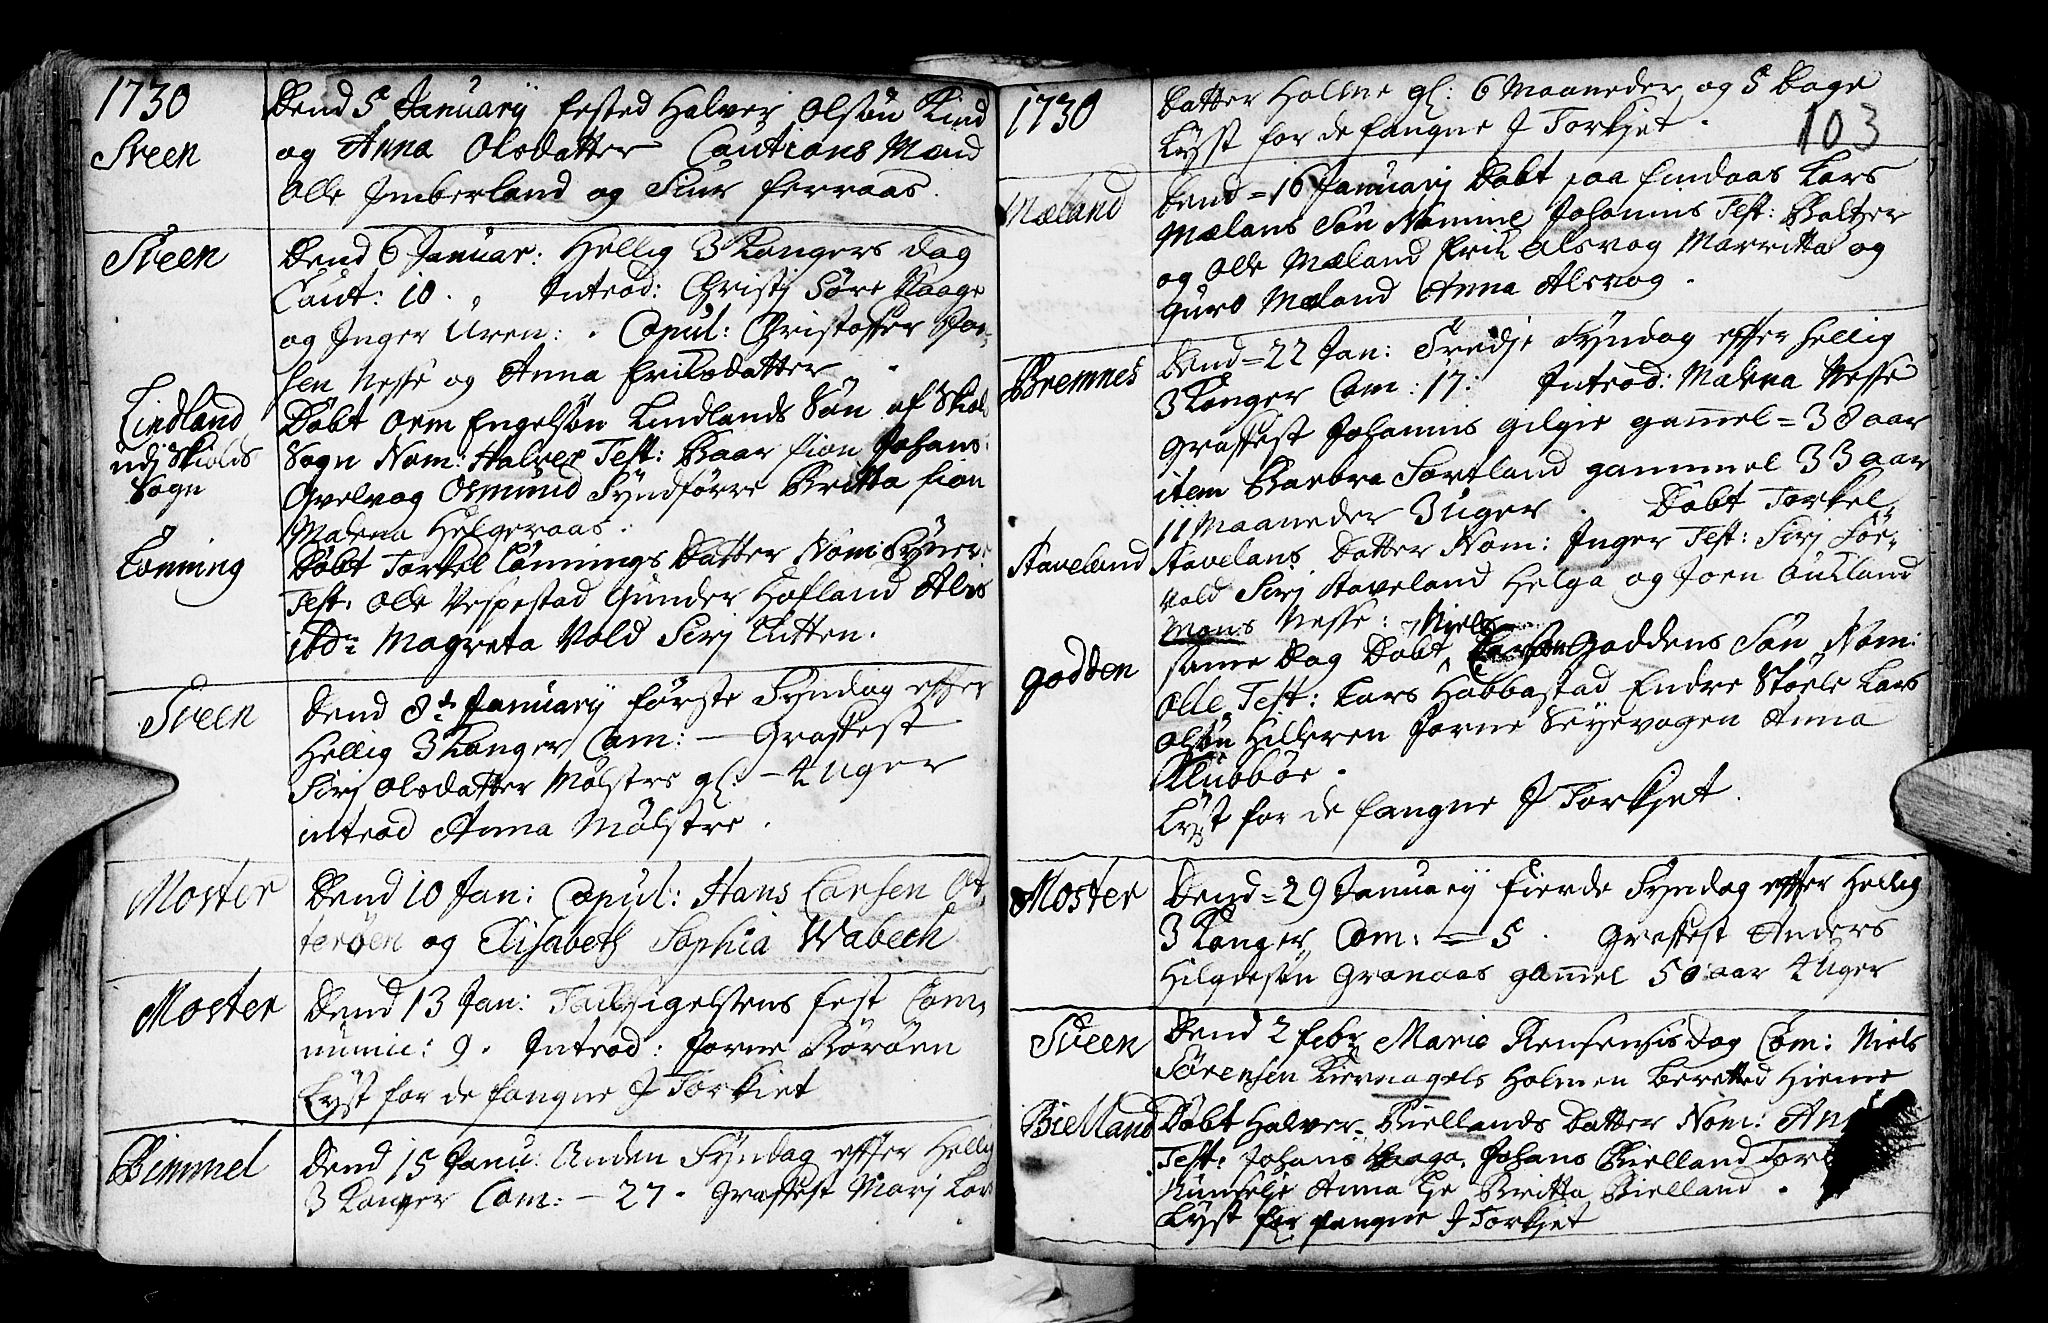 1730
Sveen
Dend 5 Januarÿ fested Halver Olsøn Kind
og Anna Olsdatter Cautions Mænd
Olle Imberland og Siur ferraas.
Sveen
Dend 6 Januar: Hellig 3 Kongers dag
10. Introd: Christj Søre Waage
og Inger Uren: . Copul: Christoffer
sen Nesse og Anna Eriksdatter
Lindland
udj Skiolds
Sogn
Døbt Orm Engelsøn Lindlands Søn af Skiol
Sogn Nom: Halver Test: Baar fion Johans:
Qvelvog Osmund Syndførre Britta fion
Malena Helgeraas:
Lønning
Døbt Torkel Lønnings Datter Nom:
Test: Olle Vespestad Gunder Hofland
ibd: Magreta Vold Sirj Litten.
Sveen
Dend 8de Januarÿ første Syndag effter
Hellig 3 Konger Com: — Graffest
Sirj Olsdatter Mølstre gl: – 4 Uger
introd Anna Mølstre.
Moster
Dend 10 Jan: Copul: Hans Larsen Ot,
terøen og Elisabeth Sophia Wabech
Moster
Dend 13 Jan: Tacksigelsens fest Com,
munic: 9. Introd: Jorne Børøen
Lyst for de fangne J Torkiet
Bømmel
Dend 15 Janu: Anden Syndag effter Hellig
3 Konger Com: – 27. Graffest Marj Lar
1730
103
Datter Hollne gl: 6 Maaneder og 5 Dage
Lyst for de fangne J Torkjet.
Mæland
Dend = 16 Januarij Døbt paa Findaas Lars
Mælans Søn Nomine Johannis Test: Baltzer
og Olle Mæland Erik Alsvog Marritta og
Guro Mæland Anna Alsvog.
Bremnes
Dend = 22 Jan: Tredje Syndag effter hellig
3 Konger Com: 17: Introd: Malena Nesse
Graffest Johannis Gilgie gammel = 38 aar
item Barbra Sortland gammel 33 aar
11 Maaneder 3 Uger. Døbt Torkel
Staveland
Stavelans Datter Nom: Inger Test: Sirj Før,
vold Sirj Staveland Helga og Joen Aukland
Mons Nesse:
Godden
Niels
same Dag Døbt Goddens Søn Nom:
Olle Test: Lars Habbastad Endre Støle Lars
Olsøn Hilleren Jorne Seyevogen Anna
Klubbøe.
Lyst for de fangne J Torkjet.
Moster
Dend = 29 Januarÿ fierde Syndag effter Hellig
3 Konger Com: = 5. Graffest Anders
Hilgdesøn Gronaas gammel 50: aar 4 Uger
Sveen
Dend 2 febr Marie Rensensis dag Com: Niels
Sørensen Kiernagels Holmen beretted Hieme
Bielland
Døbt Halver: Biellands Datter Nom: An
Test: Johans Waage, Johans Bielland
Anna Ibd Britta Bielland.
Lyst for fangne J Torkjet